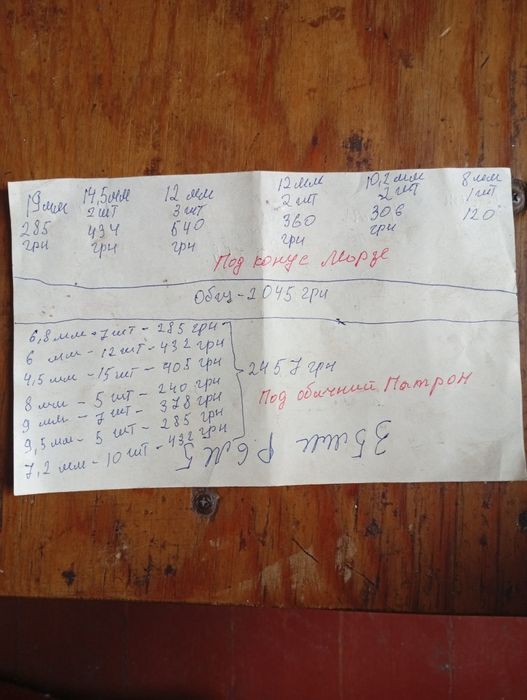 19мм 14,5мм 12 мм 12мм 10,2мм 8мм
2шт 3шт 2шт 2шт 1шт
285 434 540 360 306 120
грн грн грн грн грн
Под конус Морзе
Общ - 2045 грн
6,8мм - 7шт - 285 грн
6 мм - 12шт - 432 грн
4,5мм - 15шт - 405 грн
8 мм - 5 шт - 240 грн
9 мм - 7шт - 378 грн
9,5мм - 5 шт - 285 грн
7,2 мм - 10 шт - 432 грн
2457 грн
Под обичний Патрон
Р6М5